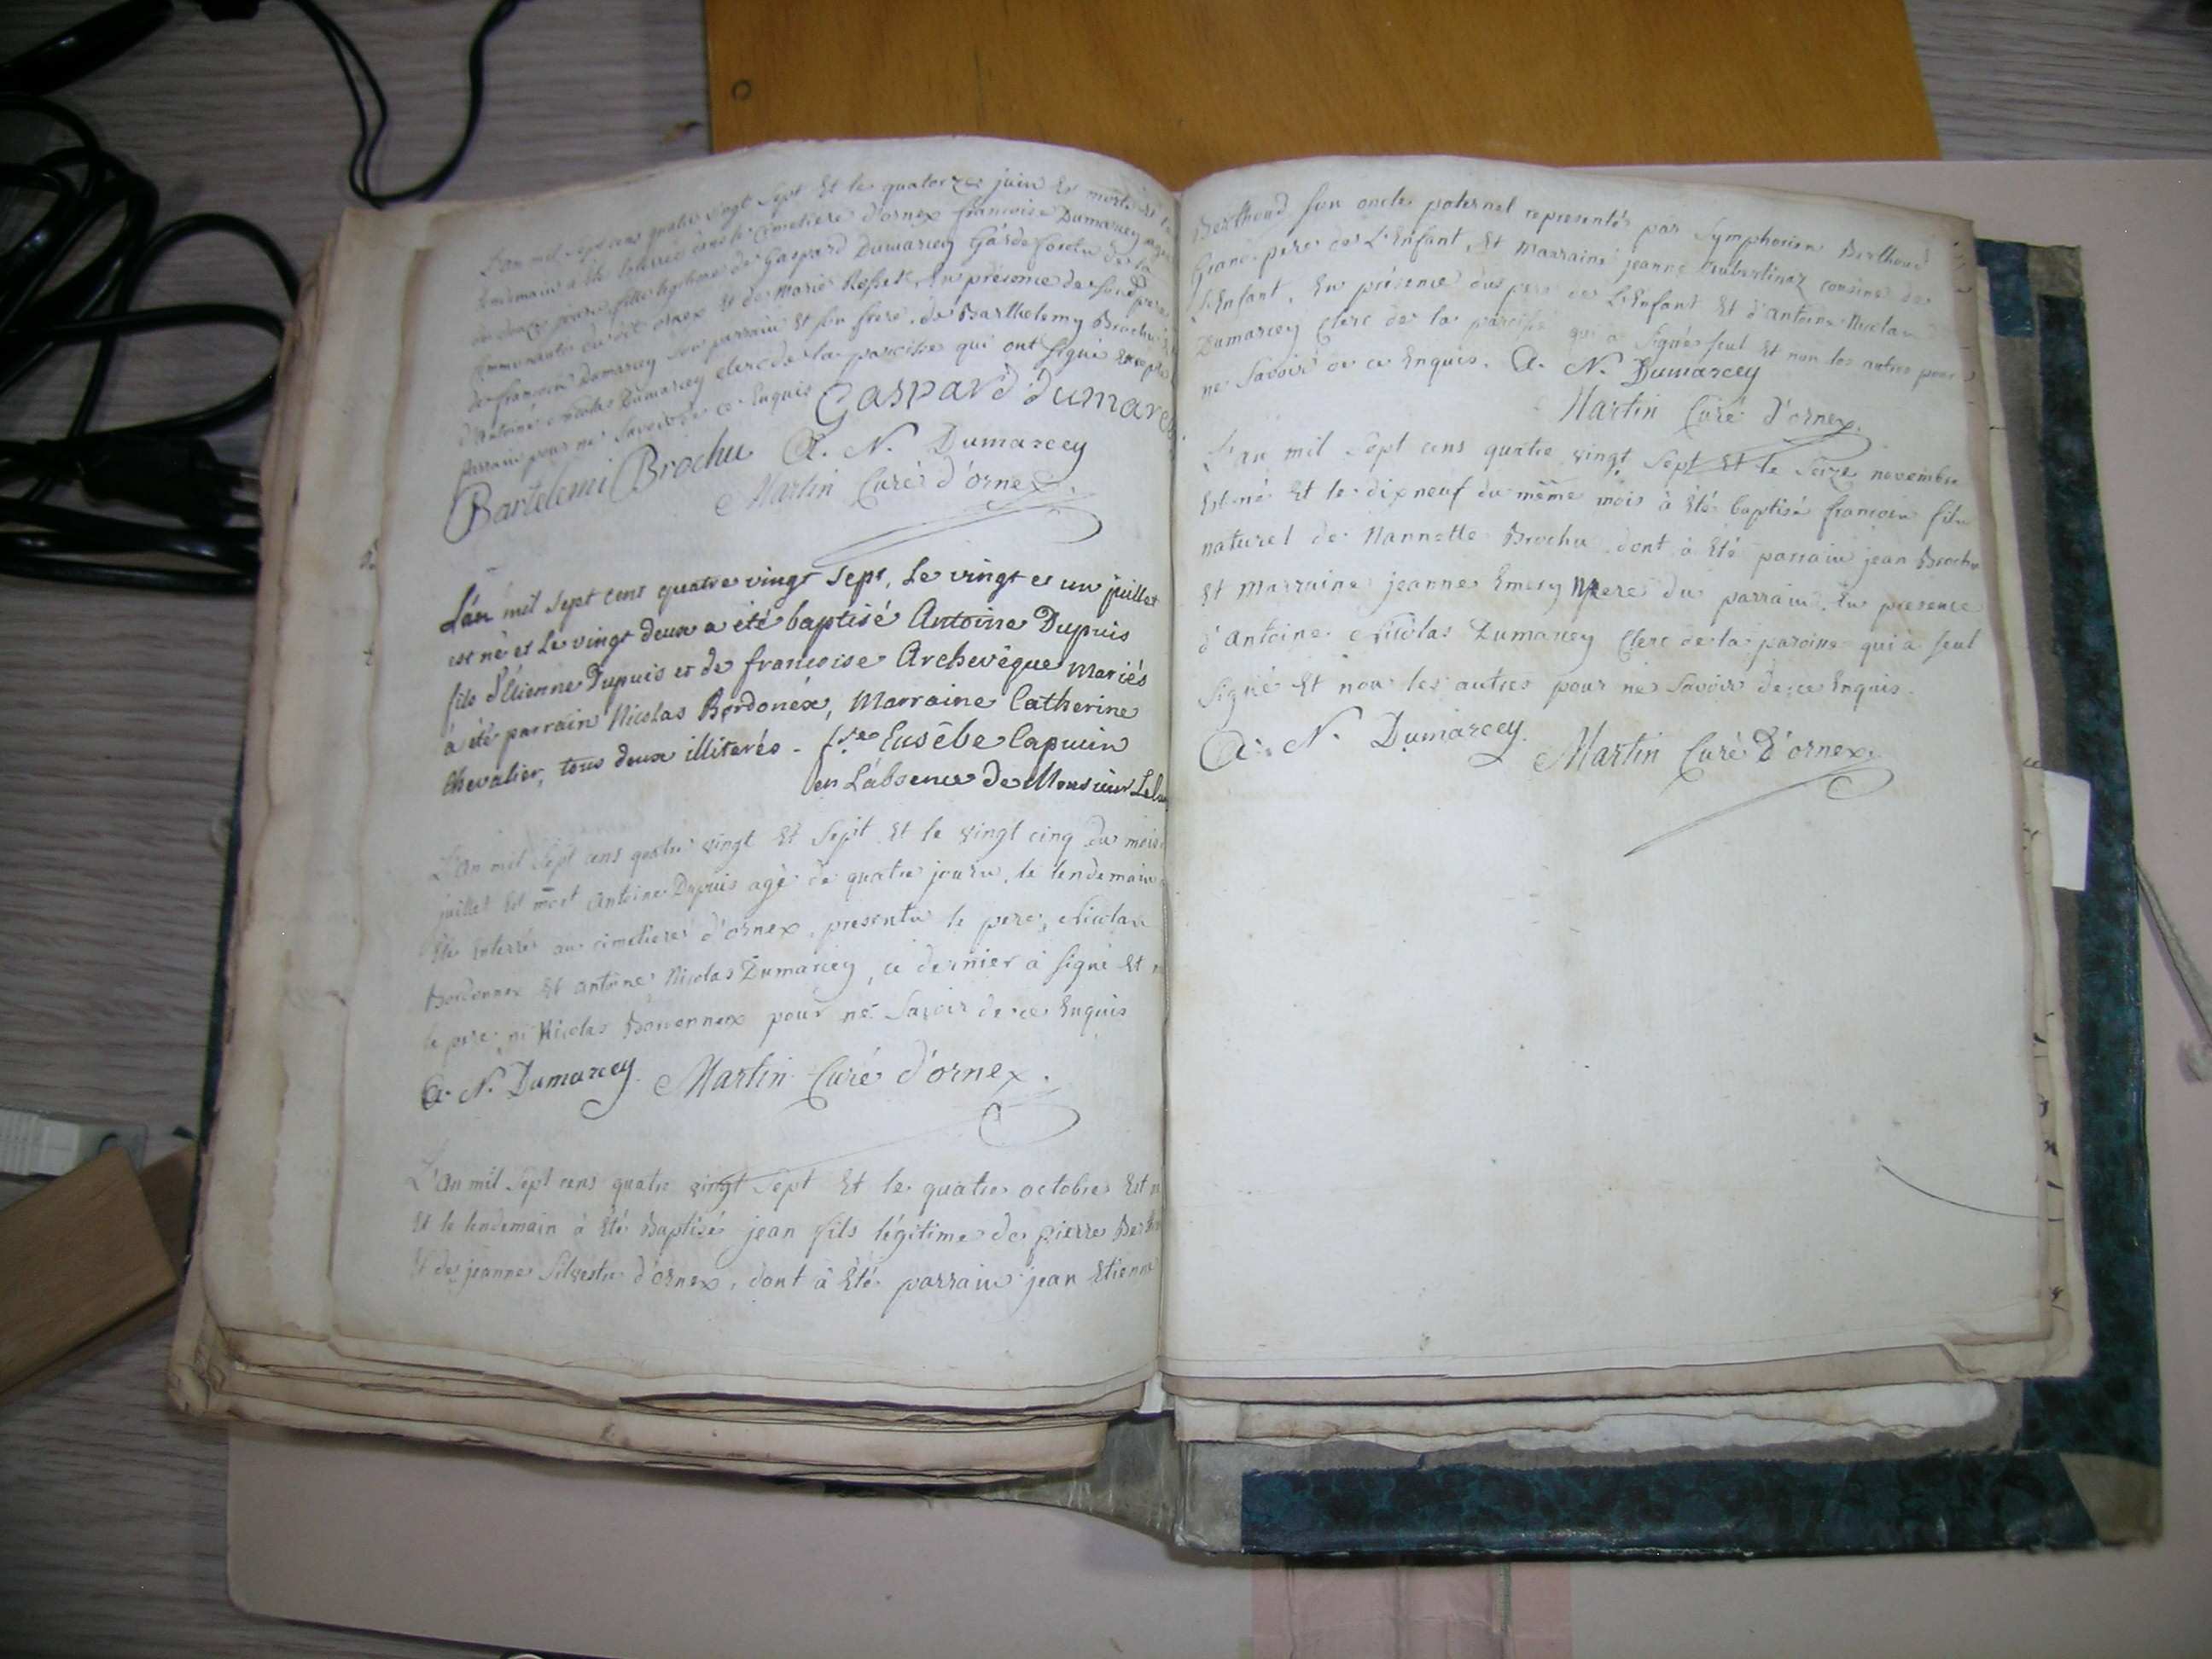 L'an mil sept cens quatre vingt sept Et le quatorze juin Est morte Et le
lendemain à été Enterrée dans le cimetiere d'ornex francoise Dumarcey agée
de douze jours, fille légitime de Gaspard Dumarcey Garde forêtu de la
Communauté du dit ornex Et de Marie Rosset, En présence de son pere
de francois Dumarcey son parrain Et son frere, de Barthelemy Brochu
d'Antoine Nicolas Dumarcey clerc de la paroisse qui ont signé Excepté
parrain pour ne savoir de ce Enquis Gaspard dumarc
Bartelemi Brochu A. N. Dumarcey
Martin Curé d'ornex.
L'an mil sept cent quatre vingt sept, Le vingt et un juillet
est né et Le vingt deux a été baptisé Antoine Dupuis
fils d'Etienne Dupuis et de francoise Archevêque Mariés
à été parrain Nicolas Bordonéx, Marraine Catherine
Chevalier, tous deux illiterés. Eusèbe Capucin
en L'absence de Monsieur
L'An mil sept cens quatre vingt Et sept Et le vingt cinq du mois
juillet Est mort Antoine Dupuis agé de quatre jours, le lendemain
été Enterré au cimetiere d'ornex, presents le pere, Nicolas
Bordonnex Et antoine Nicolas Dumarcey, ce dernier à signé Et
le pere, ni Nicolas Bordonnex pour ne savoir de ce Enquis
A. N. Dumarcey. Martin Curé d'ornex.
L'An mil sept cens quatre vingt sept Et le quatre octobre Est
Et le lendemain à été Baptisé jean fils légitime de pierre Berth
Et de jeanne Silvestre d'ornex, dont à été parrain jean Etienne
Berthoud son oncle paternel representé par Symphorien Berthoud
Grand pere de L'Enfant, Et Marraine jeanne cousine de
L'Enfant, En présence du pere de L'Enfant Et d'antoine Nicolas
Dumarcey Clerc de la paroisse qui a signé seul Et non les autres pour
ne savoir de ce Enquis. A. N. Dumarcey
Martin Curé d'ornex.
L'an mil sept cens quatre vingt sept Et le seize novembre
Est né Et le dix neuf du même mois à été baptisé francois fils
naturel de Nannette Brochu dont à été parrain jean Brochu
Et Marraine jeanne Emery Mere du parrain, En presence
d'Antoine Nicolas Dumarcey Clerc de la paroisse qui a seul
signé Et non les autres pour ne savoir de ce Enquis.
A. N. Dumarcey. Martin Curé D'ornex.